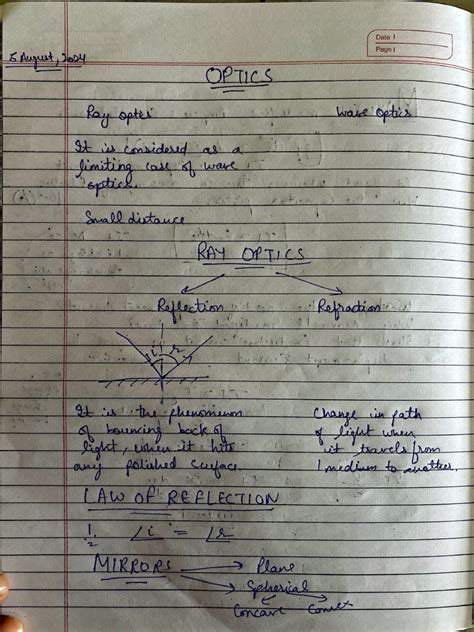 Date
Page
5 August, 2024
OPTICS
Ray optics
Wave Optics
It is considered as a
limiting case of wave
optics.
Small distance
RAY OPTICS
Reflection
Refraction
i r
It is the phenomenon
of bouncing back of
light, when it hits
any polished surface.
Change in path
of light when
it travels from
1 medium to another.
LAW OF REFLECTION
∠i = ∠r
MIRRORS → Plane
→ Spherical
Concave Convex